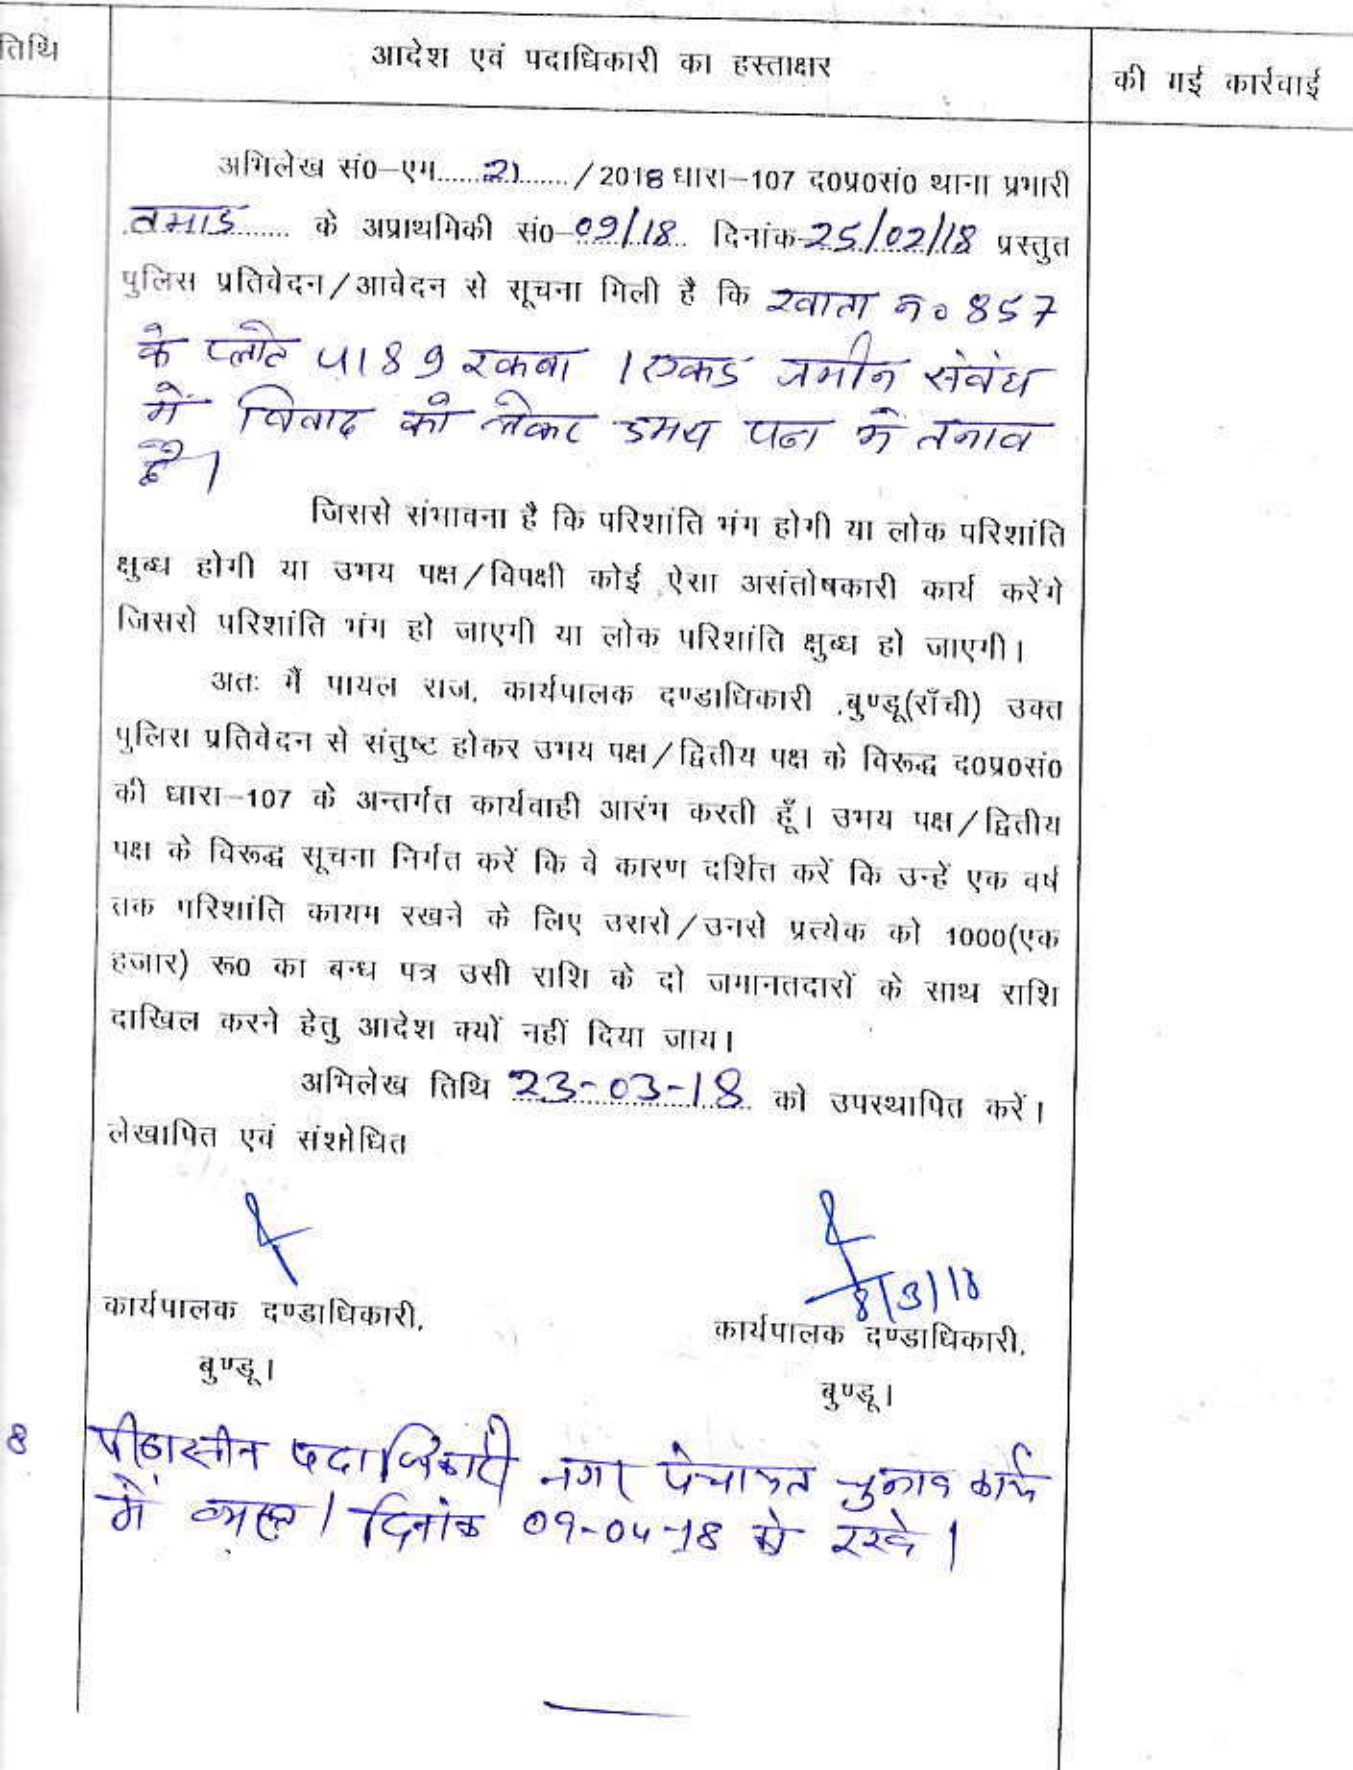 तिथि
आदेश एवं पदाधिकारी का हस्ताक्षर
की गई कार्रवाई
अभिलेख सं0–एम......21......../2018 धारा–107 द0प्र0सं0 थाना प्रभारी
तमाड़........ के अप्राथमिकी सं0–09/18.. दिनांक-25/02/18 प्रस्तुत
पुलिस प्रतिवेदन/आवेदन से सूचना मिली है कि खाता नं० 857
के प्लॉट 4189 रकबा 1 एकड जमीन संबंध
में विवाद को लेकर उभय पक्ष में तनाव
है।
जिससे संभावना है कि परिशांति भंग होगी या लोक परिशांति
क्षुब्ध होगी या उभय पक्ष/विपक्षी कोई ऐसा असंतोषकारी कार्य करेंगे
जिससे परिशांति भंग हो जाएगी या लोक परिशांति क्षुब्ध हो जाएगी।
अतः मैं पायल राज, कार्यपालक दण्डाधिकारी ,बुण्डू(राँची) उक्त
पुलिस प्रतिवेदन से संतुष्ट होकर उभय पक्ष/द्वितीय पक्ष के विरूद्ध द0प्र0सं0
की धारा–107 के अन्तर्गत कार्यवाही आरंभ करती हूँ। उभय पक्ष/द्वितीय
पक्ष के विरूद्ध सूचना निर्गत करें कि वे कारण दर्शित करें कि उन्हें एक वर्ष
तक परिशांति कायम रखने के लिए उससे/उनसे प्रत्येक को 1000(एक
हजार) रू0 का बन्ध पत्र उसी राशि के दो जमानतदारों के साथ राशि
दाखिल करने हेतु आदेश क्यों नहीं दिया जाय।
अभिलेख तिथि 23-03-18 को उपस्थापित करें।
लेखापित एवं संशोधित
8/3/18
कार्यपालक दण्डाधिकारी,
कार्यपालक दण्डाधिकारी,
बुण्डू।
बुण्डू।
8 पीठासीन पदाधिकारी नगर पंचायत चुनाव कार्य
में व्यस्त। दिनांक 09-04-18 को रखें।